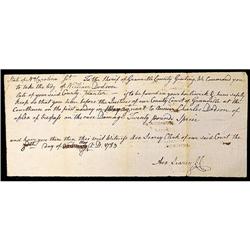 State of No Carolina Sct. To the Sheriff of Granville County Greeting We Command you
to take the body of William Dodson
late of said County Planter if to be found in your bailiwick & him safely
keep so that you him before the Justices of our County Court of Granville at the
Courthouse on the first monday in May next to answer Charles Dodson of
a plea of trespass on the case Damage Twenty pounds Specie
and have you then there this Writ Witness Asa Searcy Clerk of our said Court the
Day of A.D. 1783
Asa Searcy CC